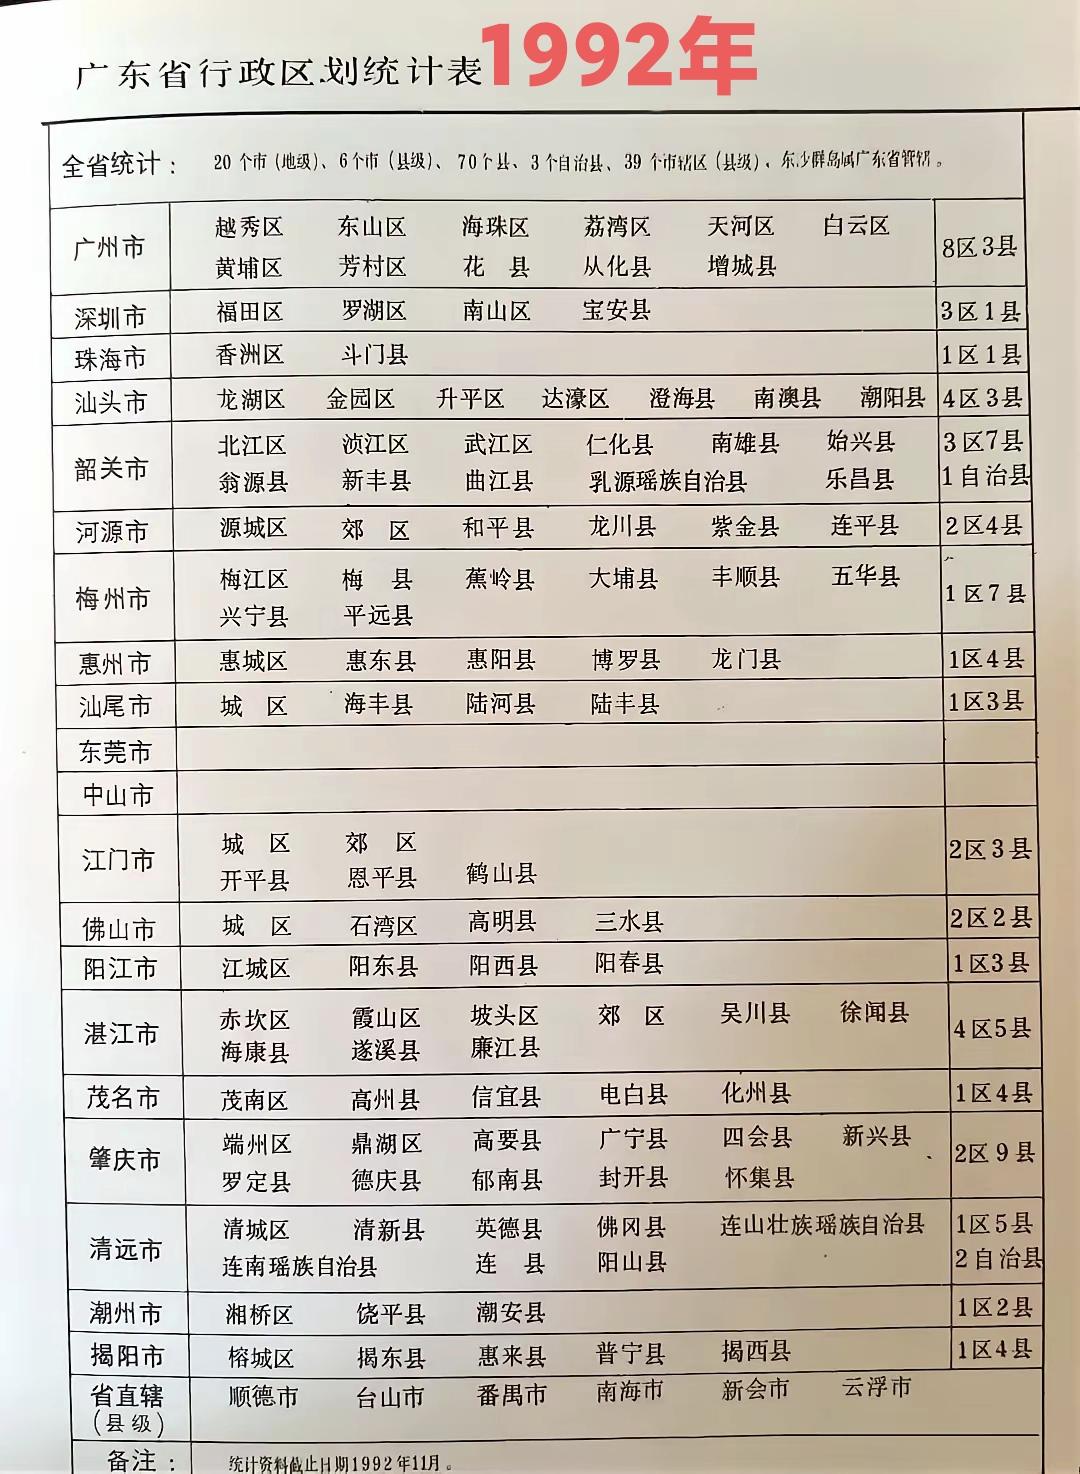 广东省行政区划统计表1992年
全省统计： 20个市（地级）、6个市（县级）、70个县、3个自治县、39个市辖区（县级）、东沙群岛属广东省管辖。
广州市 越秀区 东山区 海珠区 荔湾区 天河区 白云区 8区3县
黄埔区 芳村区 花 县 从化县 增城县
深圳市 福田区 罗湖区 南山区 宝安县 3区1县
珠海市 香洲区 斗门县 1区1县
汕头市 龙湖区 金园区 升平区 达濠区 澄海县 南澳县 潮阳县 4区3县
韶关市 北江区 浈江区 武江区 仁化县 南雄县 始兴县 3区7县
翁源县 新丰县 曲江县 乳源瑶族自治县 乐昌县 1自治县
河源市 源城区 郊 区 和平县 龙川县 紫金县 连平县 2区4县
梅州市 梅江区 梅 县 蕉岭县 大埔县 丰顺县 五华县 1区7县
兴宁县 平远县
惠州市 惠城区 惠东县 惠阳县 博罗县 龙门县 1区4县
汕尾市 城 区 海丰县 陆河县 陆丰县 1区3县
东莞市
中山市
江门市 城 区 郊 区 2区3县
开平县 恩平县 鹤山县
佛山市 城 区 石湾区 高明县 三水县 2区2县
阳江市 江城区 阳东县 阳西县 阳春县 1区3县
湛江市 赤坎区 霞山区 坡头区 郊 区 吴川县 徐闻县 4区5县
海康县 遂溪县 廉江县
茂名市 茂南区 高州县 信宜县 电白县 化州县 1区4县
肇庆市 端州区 鼎湖区 高要县 广宁县 四会县 新兴县 2区9县
罗定县 德庆县 郁南县 封开县 怀集县
清远市 清城区 清新县 英德县 佛冈县 连山壮族瑶族自治县 1区5县
连南瑶族自治县 连 县 阳山县 2自治县
潮州市 湘桥区 饶平县 潮安县 1区2县
揭阳市 榕城区 揭东县 惠来县 普宁县 揭西县 1区4县
省直辖 顺德市 台山市 番禺市 南海市 新会市 云浮市
（县级）
备注： 统计资料截止日期1992年11月。